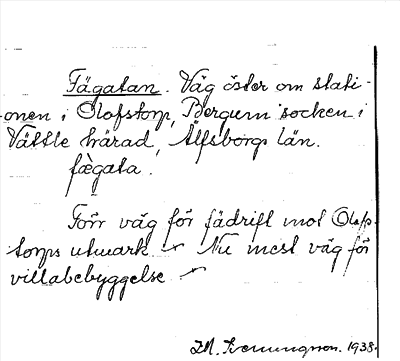 Fägatan. Väg öster om stati-
onen i Olofstorp, Bergum socken i
Vättle härad, Älfsborgs län.
fägata.
Förr väg för fädrift mot Olofs-
torps utmark – Nu mest väg för
villabebyggelse –
1938.